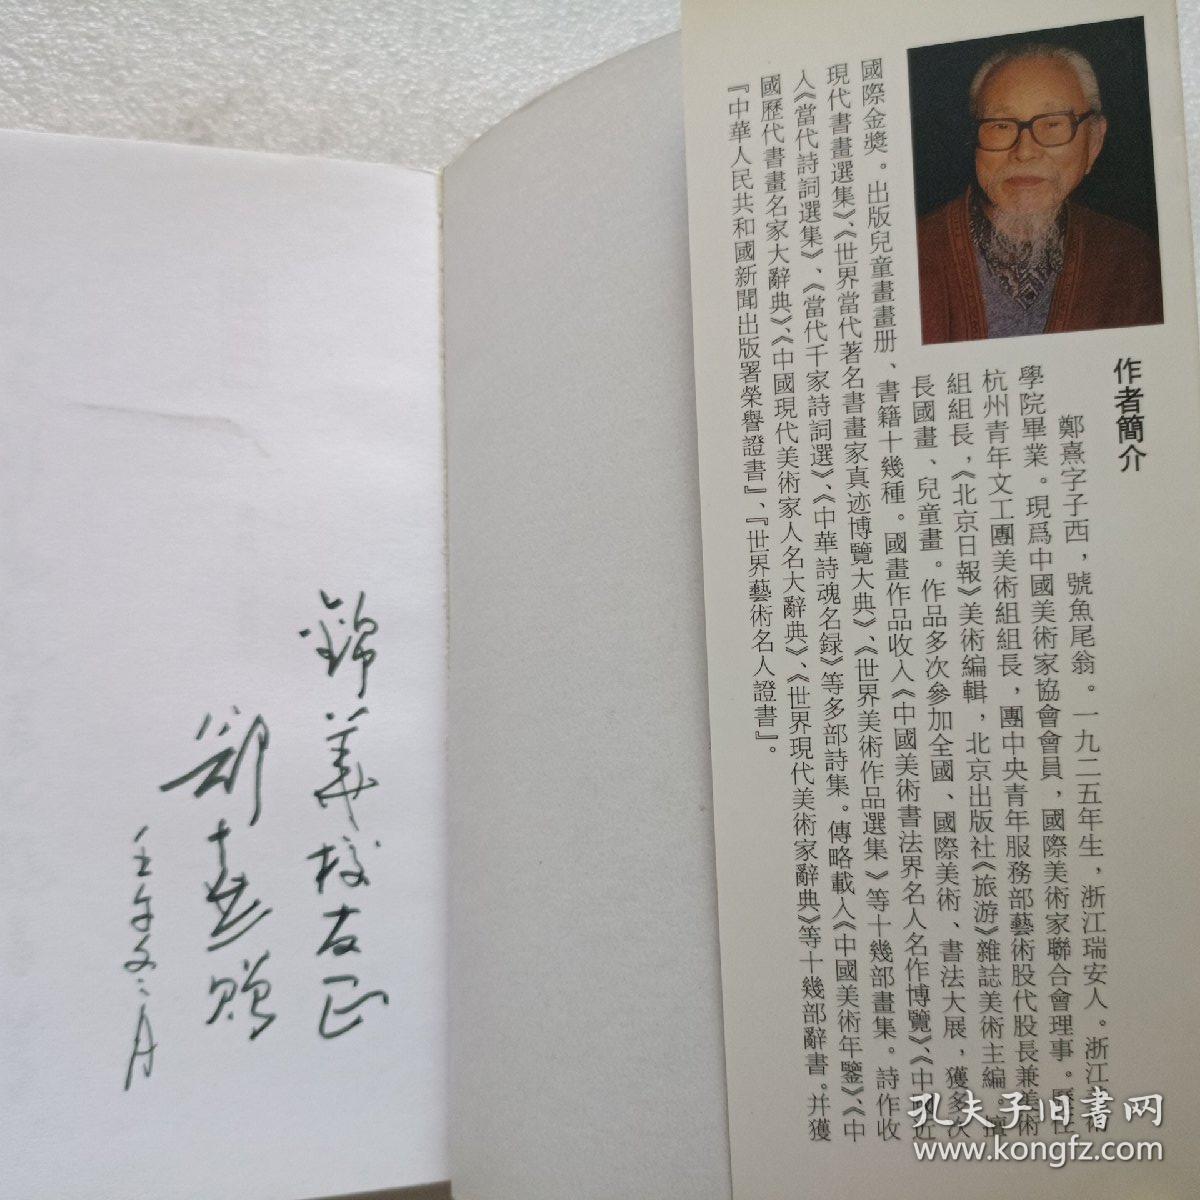 作者簡介
鄭熹字子西，號魚尾翁。一九二五年生，浙江瑞安人。浙江美術
學院畢業。現爲中國美術家協會會員，國際美術家聯合會理事。歷任
杭州青年文工團美術組組長，團中央青年服務部藝術股代股長兼美術
組組長，《北京日報》美術編輯，北京出版社《旅游》雜誌美術主編。擅
長國畫、兒童畫。作品多次參加全國、國際美術、書法大展，獲多次
國際金獎。出版兒童畫畫册、書籍十幾種。國畫作品收入《中國美術書法界名人名作博覽》、《中國近
現代書畫選集》、《世界當代著名書畫家真迹博覽大典》、《世界美術作品選集》等十幾部畫集。詩作收
入《當代詩詞選集》、《當代千家詩詞選》、《中華詩魂名録》等多部詩集。傳略載入《中國美術年鑒》、《中
國歷代書畫名家大辭典》、《中國現代美術家人名大辭典》、《世界現代美術家辭典》等十幾部辭書。并獲
『中華人民共和國新聞出版署榮譽證書』、『世界藝術名人證書』。
錦義校友正
鄭熹贈
孔夫子旧書网
www.kongfz.com